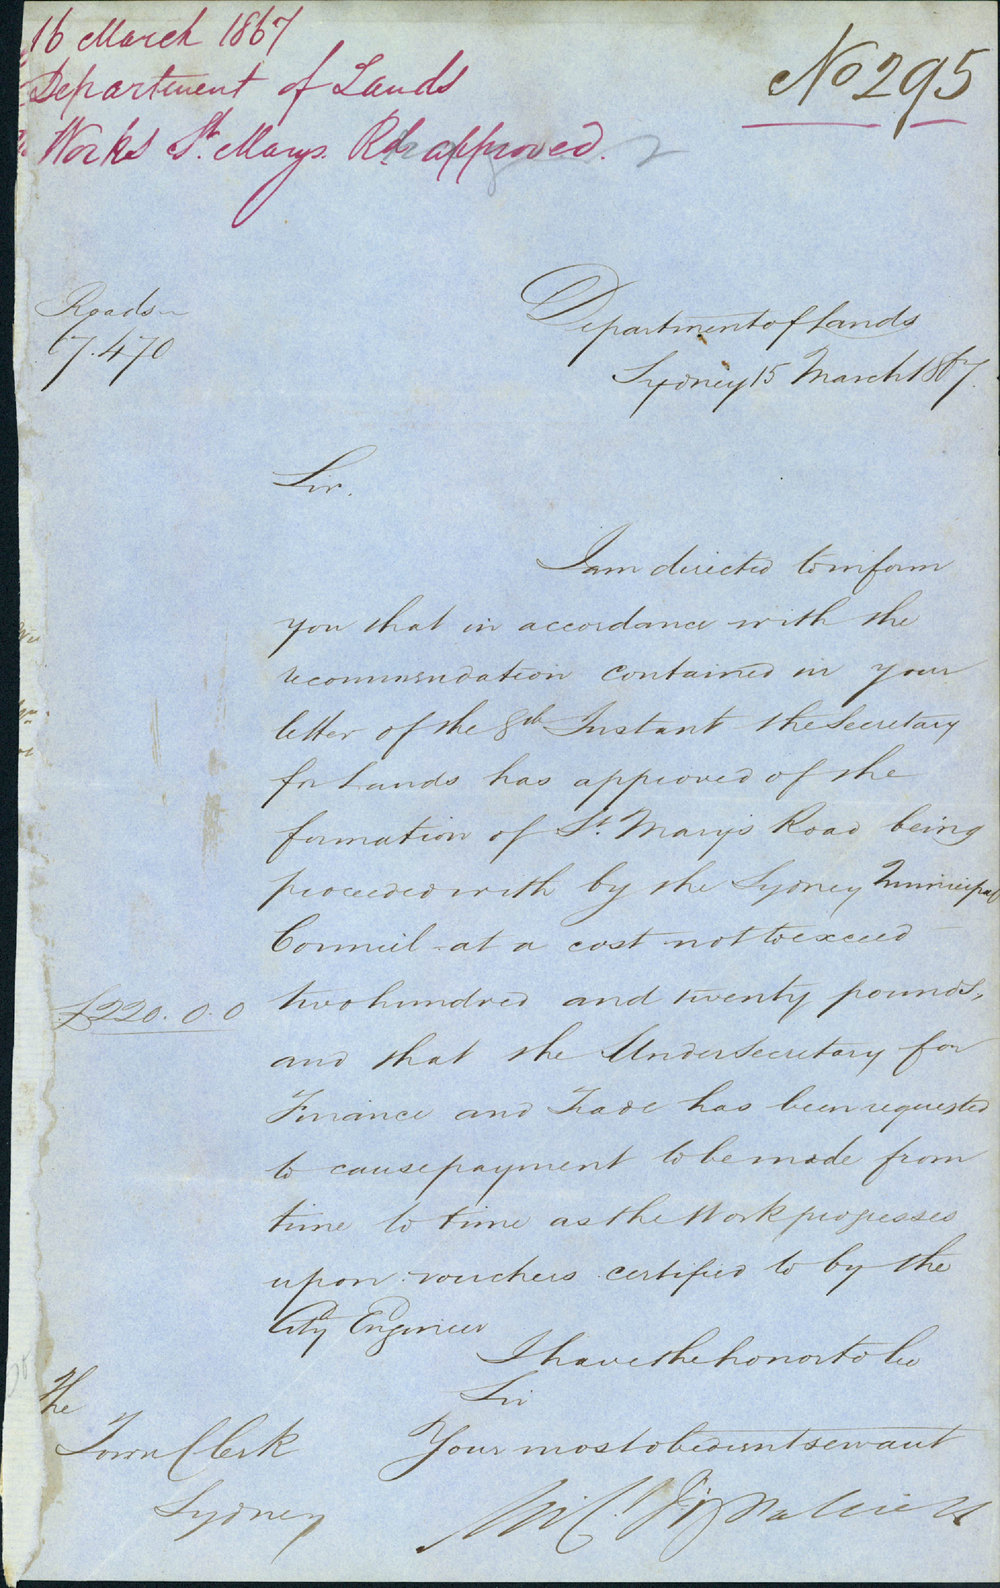 16 March 1867
Department of Lands
Works St. Marys. Rd. approved.
No 295
Roads
67.470
Department of Lands
Sydney 15 March 1867.
Sir.
I am directed to inform
you that in accordance with the
recommendation contained in your
letter of the 8th Instant the Secretary
for Lands has approved of the
formation of St. Mary's Road being
proceeded with by the Sydney Municipal
Council at a cost not to exceed
£220.0.0
two hundred and twenty pounds,
and that the Under Secretary for
Finance and Trade has been requested
to cause payment to be made from
time to time as the Work progresses
upon vouchers certified to by the
City Engineer
I have the honor to be
Sir
Your most obedient servant
The
Town Clerk
Sydney